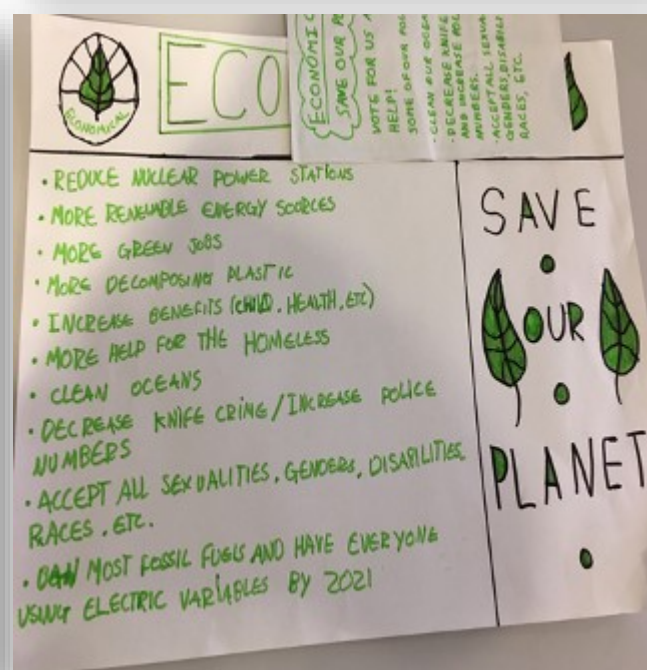 ECONOMICAL
ECO
ECONOMIC
SAVE OUR
VOTE FOR US
HELP!
SOME OF OUR
• CLEAN OUR
• DECREASE KNIFE
AND INCREASE
NUMBERS.
• ACCEPT ALL
GENDERS,
RACES, ETC.
• REDUCE NUCLEAR POWER STATIONS
• MORE RENEWABLE ENERGY SOURCES
• MORE GREEN JOBS
• MORE DECOMPOSING PLASTIC
• INCREASE BENEFITS (CHILD, HEALTH, ETC)
• MORE HELP FOR THE HOMELESS
• CLEAN OCEANS
• DECREASE KNIFE CRIME/INCREASE POLICE
NUMBERS
• ACCEPT ALL SEXUALITIES, GENDERS, DISABILITIES,
RACES, ETC.
• BAN MOST FOSSIL FUELS AND HAVE EVERYONE
USING ELECTRIC VARIABLES BY 2021
SAVE
OUR
PLANET